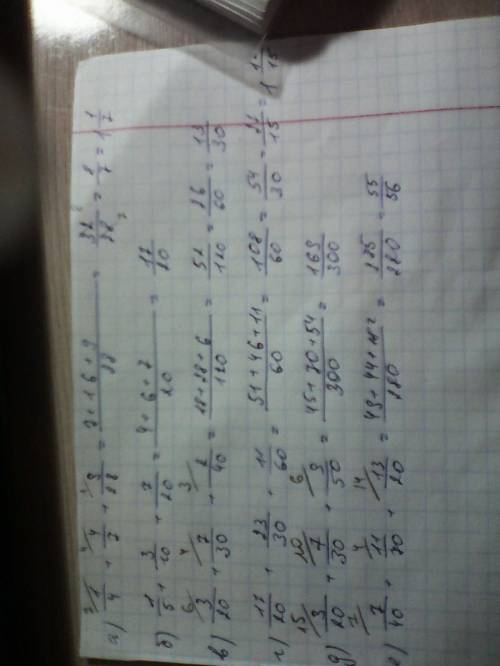 а) 1/4 + 4/7 + 9/28 = (7+16+9)/28 = 32/28 = 8/7 = 1 1/7
б) 1/5 + 3/10 + 7/20 = (4+6+7)/20 = 17/20
в) 3/20 + 7/30 + 2/40 = (18+28+6)/120 = 52/120 = 26/60 = 13/30
г) 17/20 + 23/30 + 11/60 = (51+46+11)/60 = 108/60 = 54/30 = 27/15 =
д) 3/20 + 7/30 + 9/50 = (45+70+54)/300 = 169/300
е) 7/40 + 11/70 + 13/20 = (49+44+182)/280 = 275/280 = 55/56